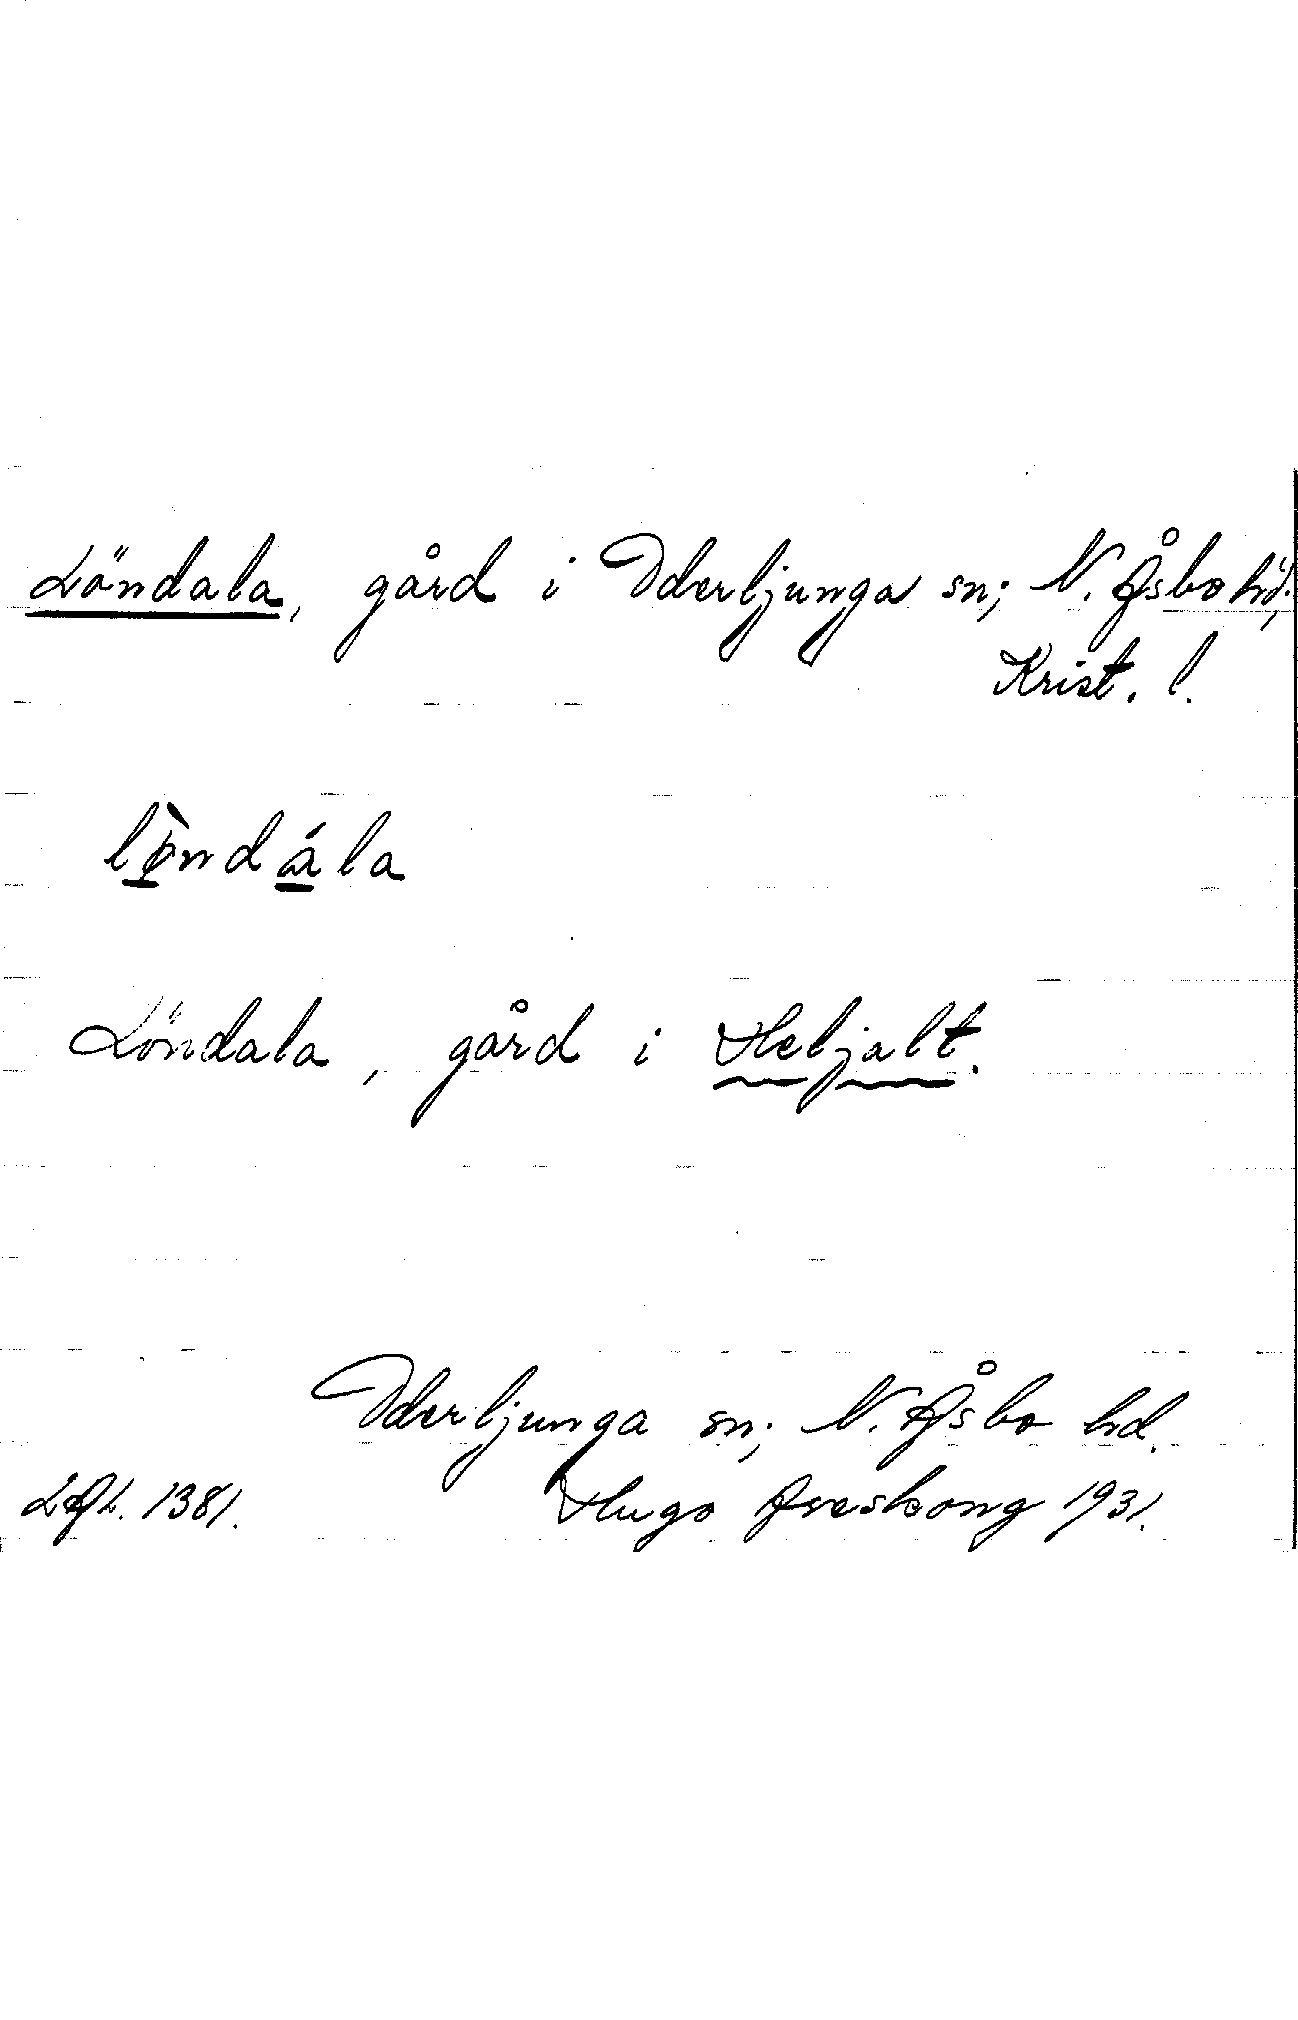 Löndala, gård i Oderljunga sn; N. Åsbo hd.
Krist. l.
lø̀ndála
Löndala, gård i Heljalt.
Oderljunga sn; N. Åsbo hd.
LAL. 1381. Hugo Areskoug 1931.